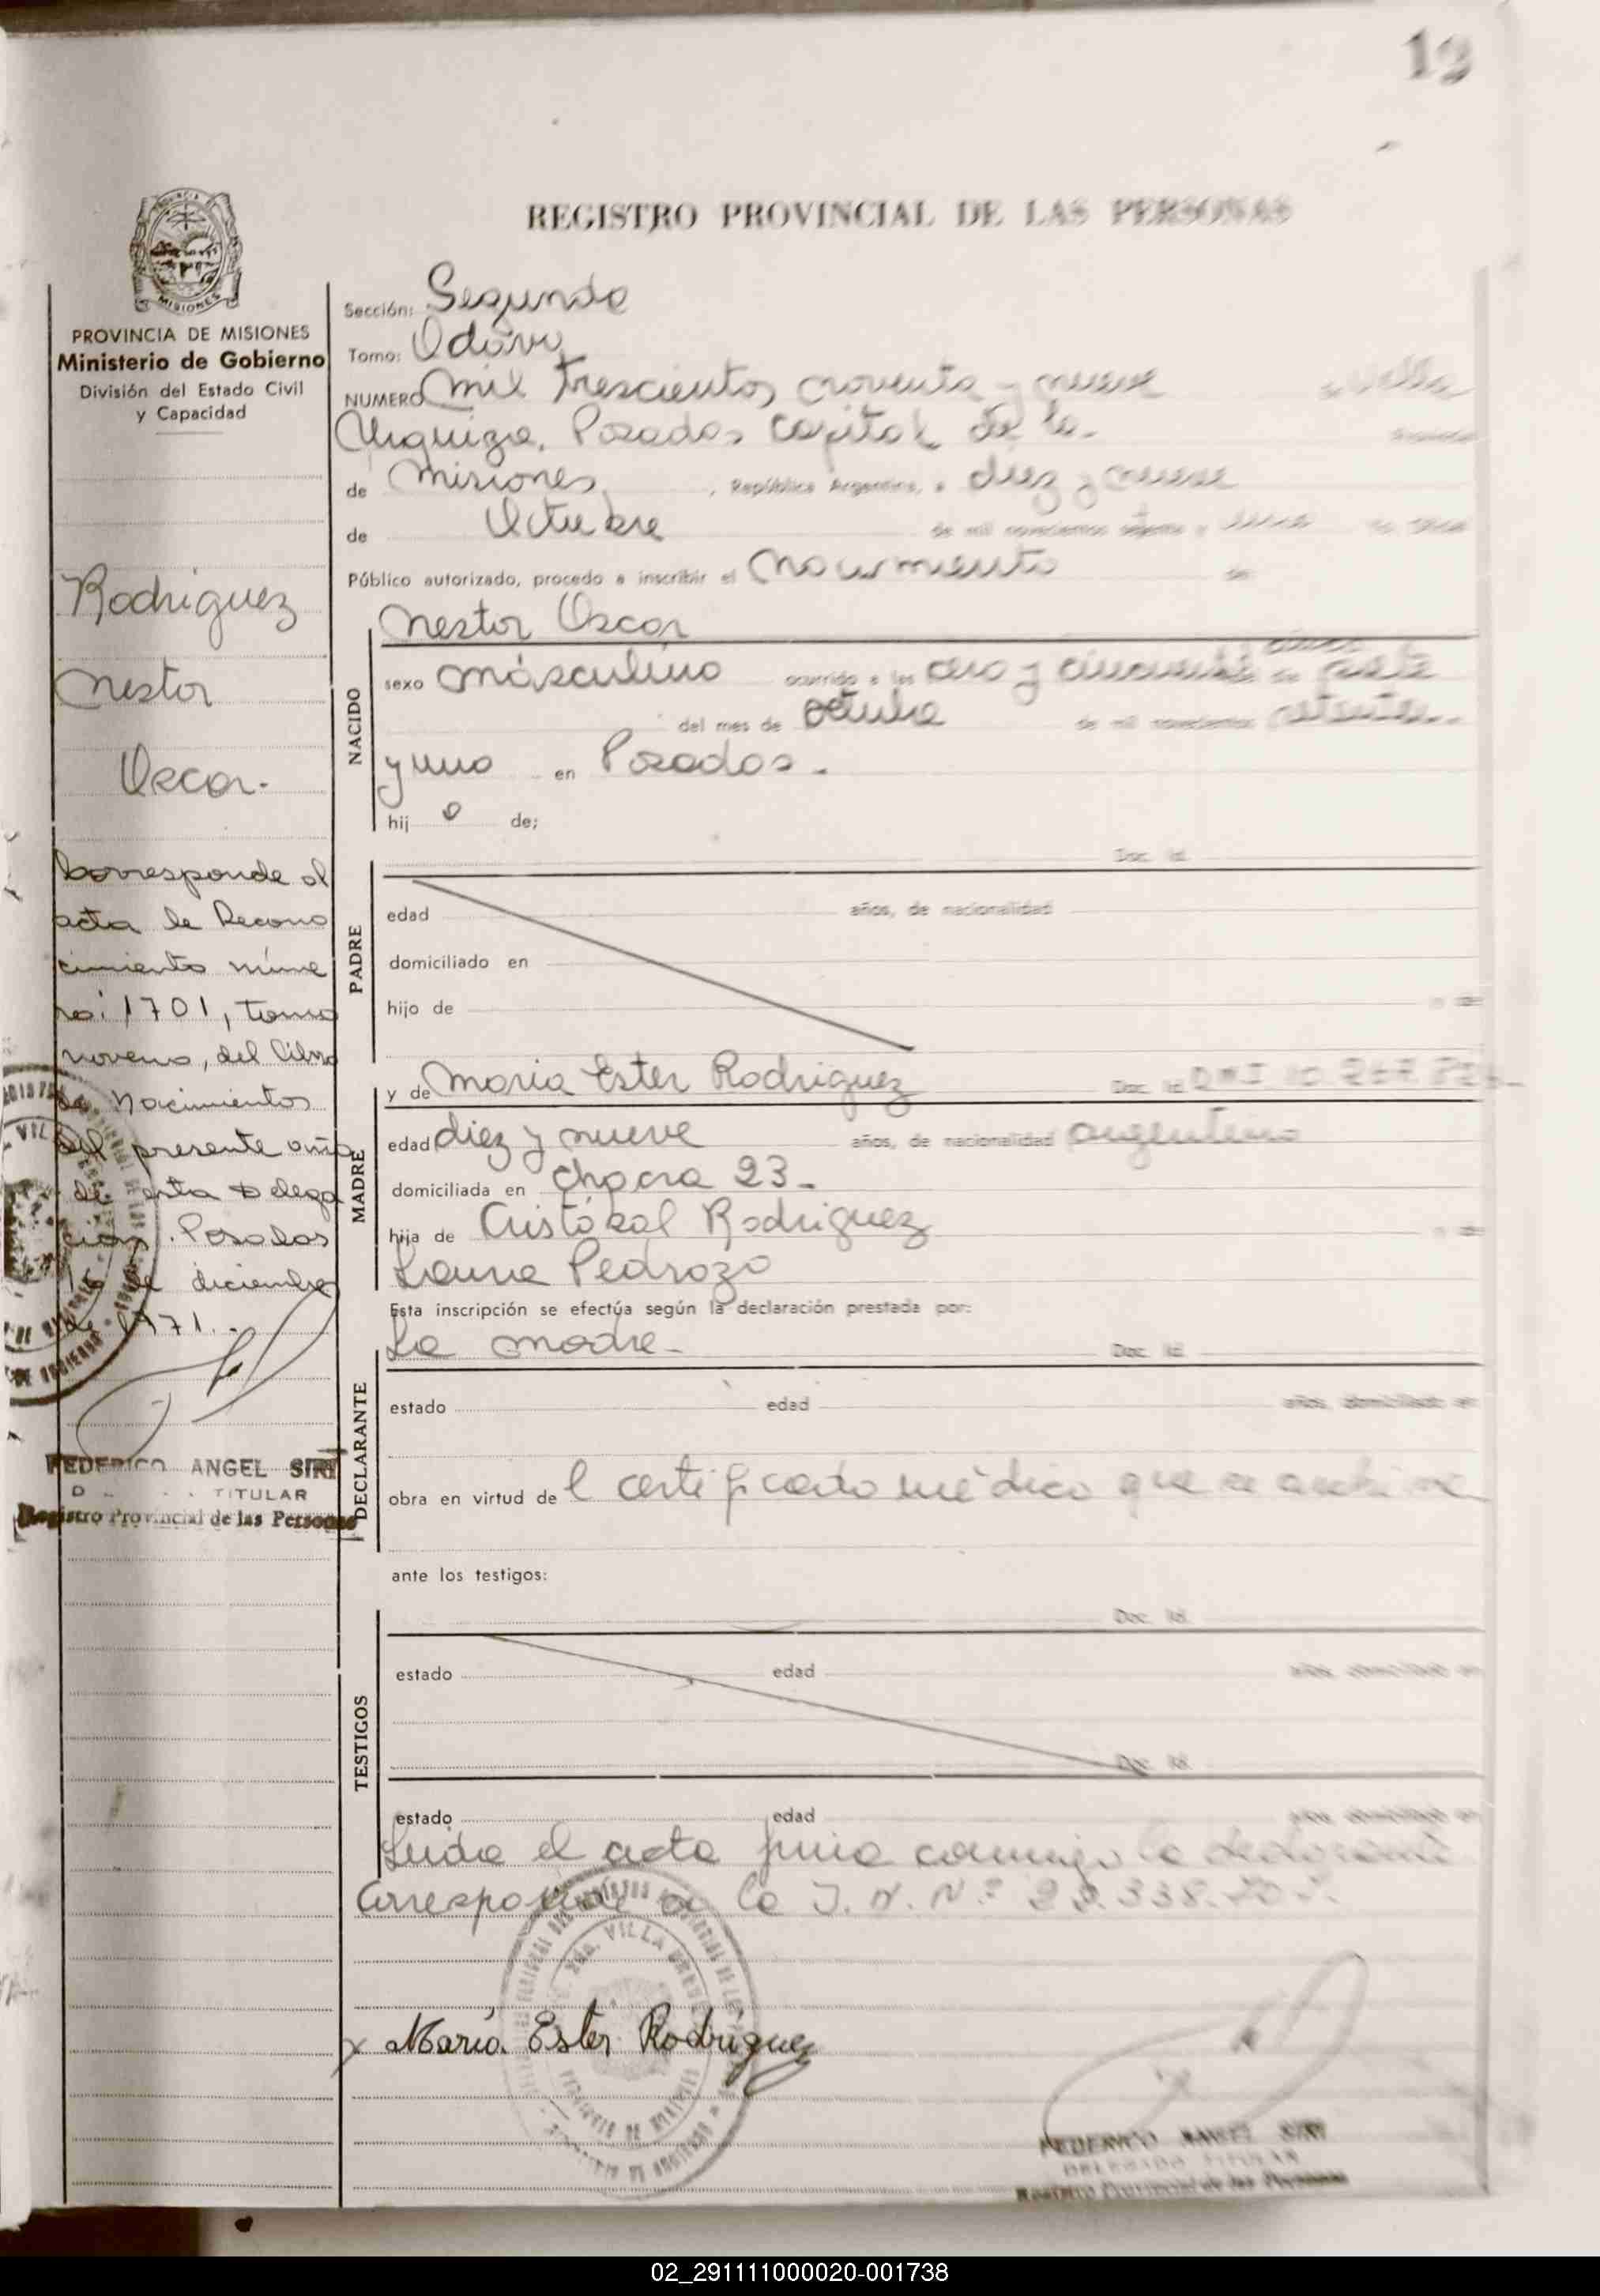 19
REGISTRO PROVINCIAL DE LAS PERSONAS
MISIONES
PROVINCIA DE MISIONES
Ministerio de Gobierno
División del Estado Civil
y Capacidad
Rodriguez
Nestor
Oscar.
Corresponde al
acta de Recono
cimiento núme
ro: 1701, tomo
noveno, del libro
de Nacimientos
del presente año
de esta Delega
ción. Posadas
16 de diciembre
de 1971.-
FEDERICO ANGEL SIRI
TITULAR
Registro Provincial de las Personas
Sección: Segunda
Tomo: Octavo
NUMERO Mil trescientos noventa y nueve Villa
Urquiza. Posadas capital de la-
de Misiones, República Argentina, a diez y nueve
de Octubre de mil novecientos setenta y uno
Público autorizado, procedo a inscribir el Nacimiento de
NACIDO
Nestor Oscar
sexo masculino ocurrido a las cero y cincuenta
del mes de octubre de mil novecientos setenta
y uno en Posadas.-
hij o de;
PADRE
Doc. Id.
edad años, de nacionalidad
domiciliado en
hijo de y de
MADRE
y de Maria Ester Rodriguez Doc. Id. DNI
edad diez y nueve años, de nacionalidad argentina
domiciliada en chacra 23.-
hija de Cristóbal Rodriguez y de
Laura Pedrozo
Esta inscripción se efectúa según la declaración prestada por:
DECLARANTE
La madre- Doc. Id.
estado edad años, domiciliado en
obra en virtud de l certificado médico que se archiva
ante los testigos:
TESTIGOS
Doc. Id.
estado edad años, domiciliado en
Doc. Id.
estado edad años, domiciliado en
Leida el acta firma conmigo la declarante
Corresponde a la I.N. Nº 22.338.
VILLA
María Ester Rodríguez
FEDERICO ANGEL SIRI
DELEGADO TITULAR
Registro Provincial de las Personas
02_291111000020-001738